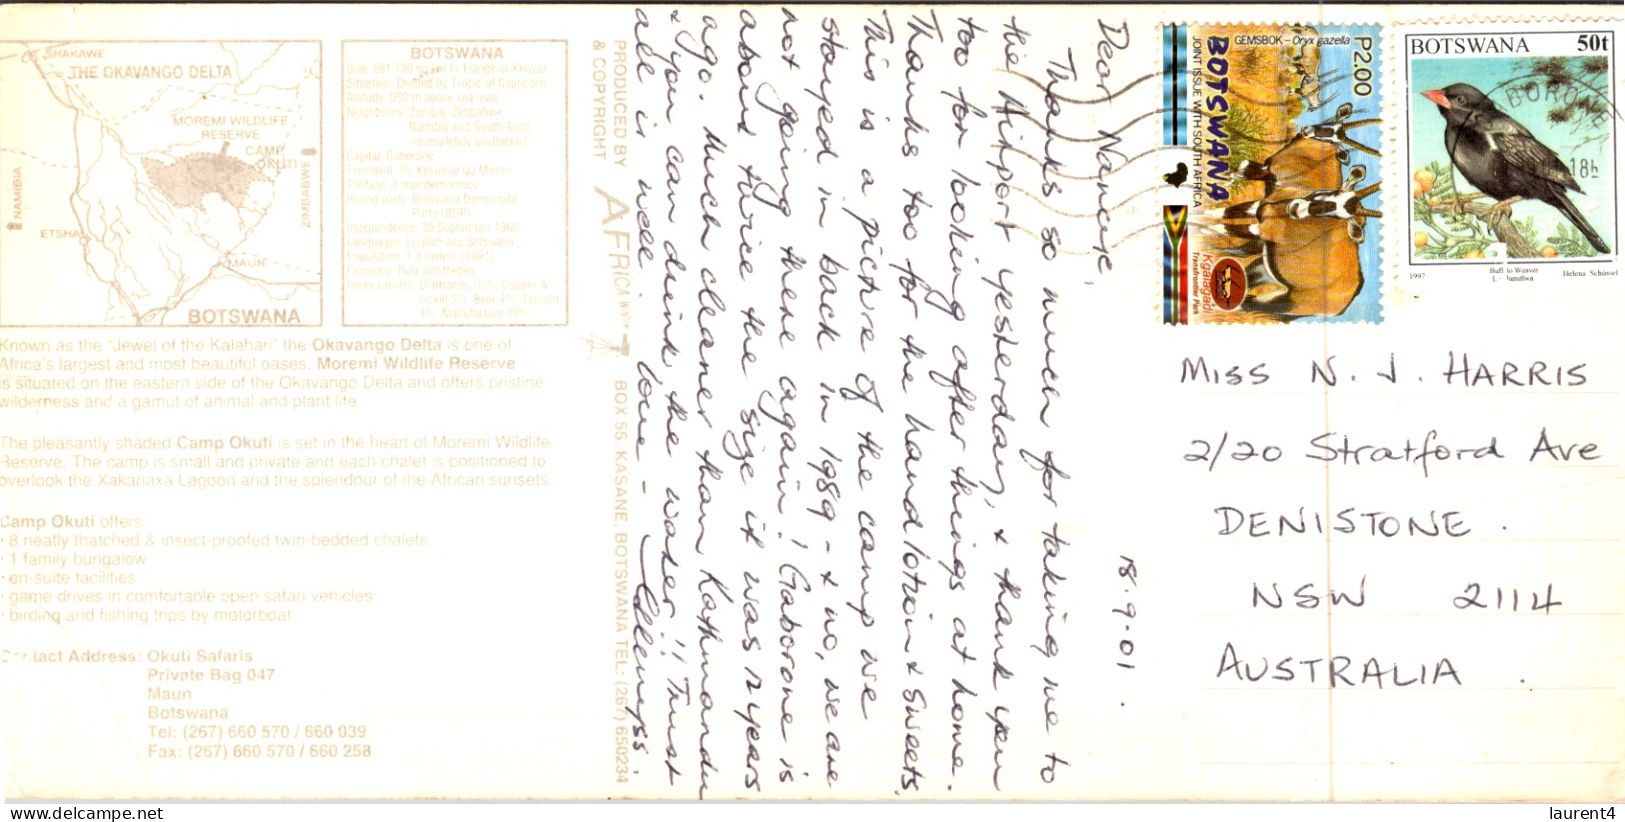 SHAKAWE
THE OKAVANGO DELTA
MOREMI WILDLIFE
RESERVE
CAMP
OKUTI
NAMIBIA
ZIMBABWE
ETSHA
MAUN
BOTSWANA
BOTSWANA
Size: 581 730 sq km (= France or Kenya)
Situation: Divided by Tropic of Capricorn
Altitude: 950 m above sea level
Neighbours: Zambia, Zimbabwe,
Namibia and South Africa
- completely landlocked
Capital: Gaborone
President: Sir Ketumile QJ Masire
Political: A true democracy
Ruling party: Botswana Democratic
Party (BDP)
Independence: 30 September 1966
Languages: English and Setswana
Population: 1.3 million (1991)
Currency: Pula and thebes
Forex earners: Diamonds 76%, Copper &
nickel 5%, Beef 4%, Tourism
4%, Manufacture 10%
Known as the "Jewel of the Kalahari" the Okavango Delta is one of
Africa's largest and most beautiful oases. Moremi Wildlife Reserve
is situated on the eastern side of the Okavango Delta and offers pristine
wilderness and a gamut of animal and plant life.
The pleasantly shaded Camp Okuti is set in the heart of Moremi Wildlife
Reserve. The camp is small and private and each chalet is positioned to
overlook the Xakanaxa Lagoon and the splendour of the African sunsets.
Camp Okuti offers:
· 8 neatly thatched & insect-proofed twin-bedded chalets
· 1 family bungalow
· en-suite facilities
· game drives in comfortable open safari vehicles
· birding and fishing trips by motorboat
Contact Address: Okuti Safaris
Private Bag 047
Maun
Botswana
Tel: (267) 660 570 / 660 039
Fax: (267) 660 570 / 660 258
PRODUCED BY
& COPYRIGHT
AFRICA
BOX 55, KASANE, BOTSWANA TEL: (267) 650234
18.9.01.
Dear Nancye,
Thanks so much for taking me to
the Airport yesterday, & thank you
too for looking after things at home.
Thanks too for the hand lotion & sweets.
This is a picture of the camp we
stayed in back in 1989 - & no, we are
not going there again! Gaborone is
about twice the size it was 12 years
ago. Much cleaner than Kathmandu
& you can drink the water!! Trust
all is well. Love -
P2.00
GEMSBOK - Oryx gazella
BOTSWANA
JOINT ISSUE WITH SOUTH AFRICA
Kgalagadi
Transfrontier Park
BOTSWANA 50t
1997
Buffalo Weaver
Helena Schüssel
MISS N. J. HARRIS
2/20 Stratford Ave
DENISTONE.
NSW 2114
AUSTRALIA.
laurent4